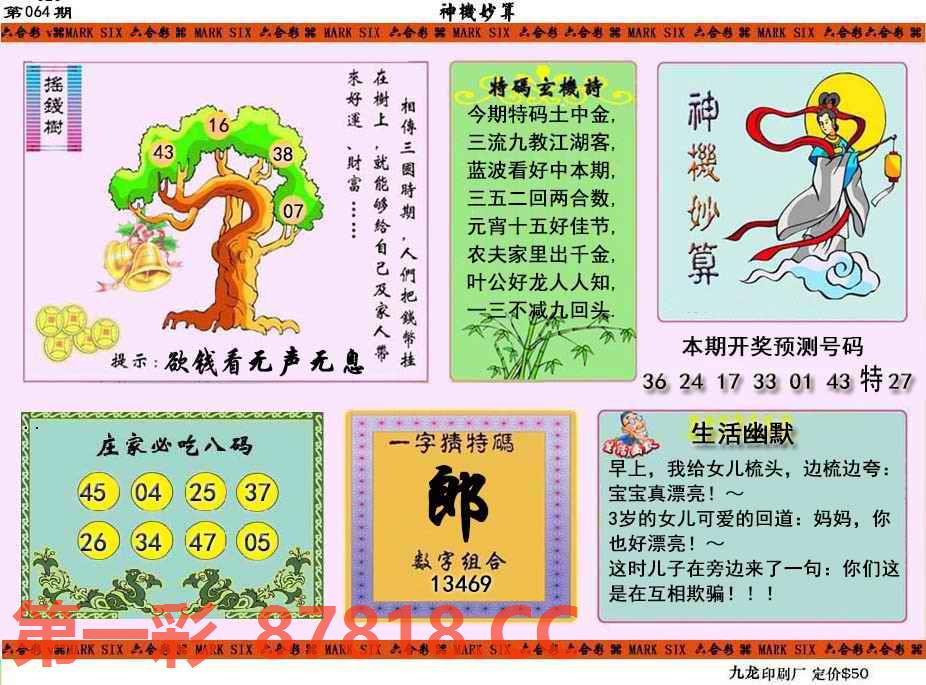 第064期
神機妙算
六合彩 MARK SIX 六合彩 MARK SIX 六合彩 MARK SIX 六合彩 MARK SIX 六合彩 MARK SIX 六合彩 MARK SIX 六合彩 MARK SIX 六合彩
搖錢樹
16
43
38
07
相傳三國時期,人們把錢幣挂
在樹上,就能够給自己及家人帶
來好運、財富……
提示:欲钱看无声无息
特碼玄機詩
今期特码土中金,
三流九教江湖客,
蓝波看好中本期,
三五二回两合数,
元宵十五好佳节,
农夫家里出千金,
叶公好龙人人知,
一三不减九回头.
神機妙算
本期开奖预测号码
36 24 17 33 01 43 特27
庄家必吃八码
45 04 25 37
26 34 47 05
一字猜特碼
郎
数字组合
13469
生活幽默
生活幽默
早上，我给女儿梳头，边梳边夸：
宝宝真漂亮！～
3岁的女儿可爱的回道：妈妈，你
也好漂亮！～
这时儿子在旁边来了一句：你们这
是在互相欺骗！！！
第一彩 87818.CC
六合彩 MARK SIX 六合彩 MARK SIX 六合彩 MARK SIX 六合彩 MARK SIX 六合彩 MARK SIX 六合彩 MARK SIX 六合彩 MARK SIX 六合彩
九龙印刷厂 定价$50